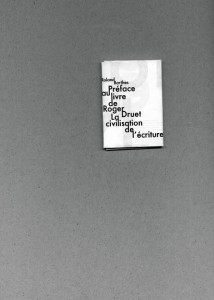 Roland
Barthes
Préface
au livre
de
Roger Druet
La
civilisation
de l'écriture